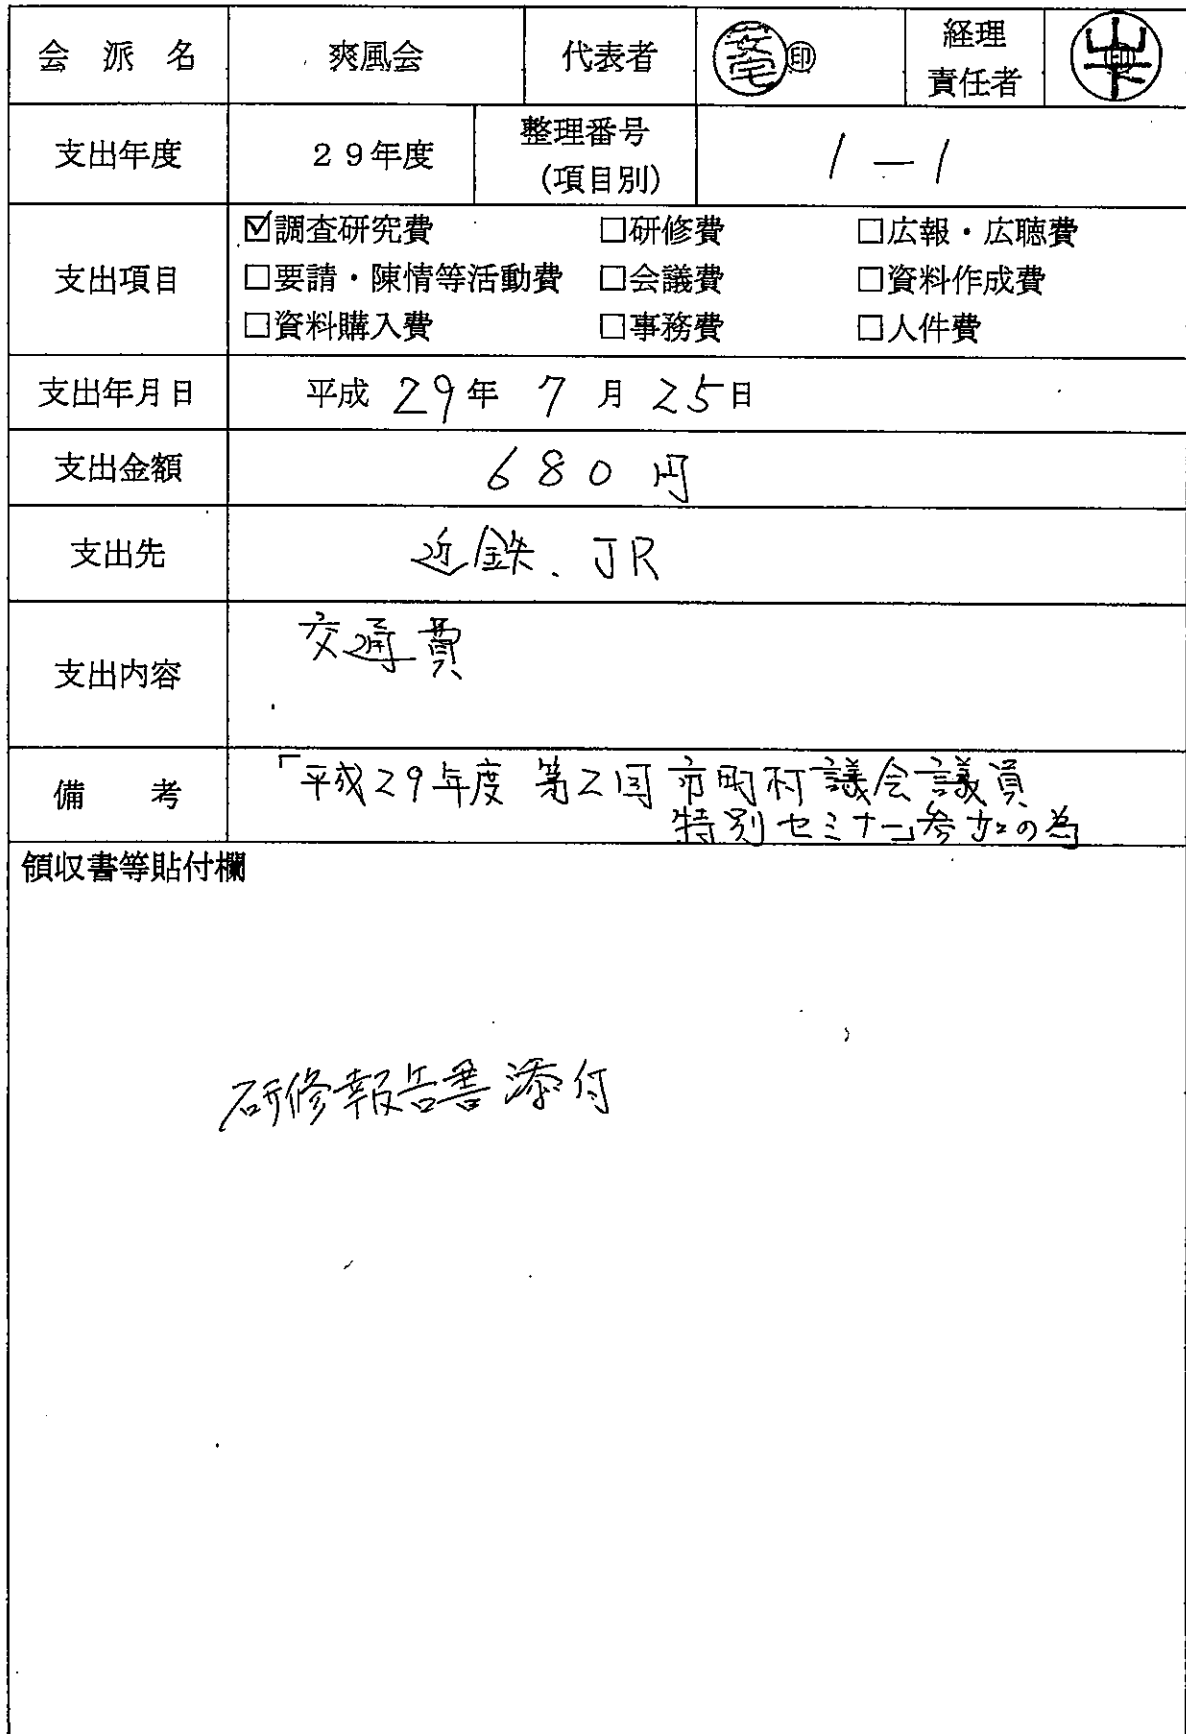 会 派 名 爽風会 代表者 ㊞ 経理責任者 印
支出年度 29年度 整理番号(項目別) 1-1
支出項目
☑調査研究費 □研修費 □広報・広聴費
□要請・陳情等活動費 □会議費 □資料作成費
□資料購入費 □事務費 □人件費
支出年月日 平成 29年 7月 25日
支出金額 680円
支出先 近鉄.JR
支出内容 交通費
備 考 「平成29年度 第2回市町村議会議員
特別セミナー」参加の為
領収書等貼付欄
研修報告書添付